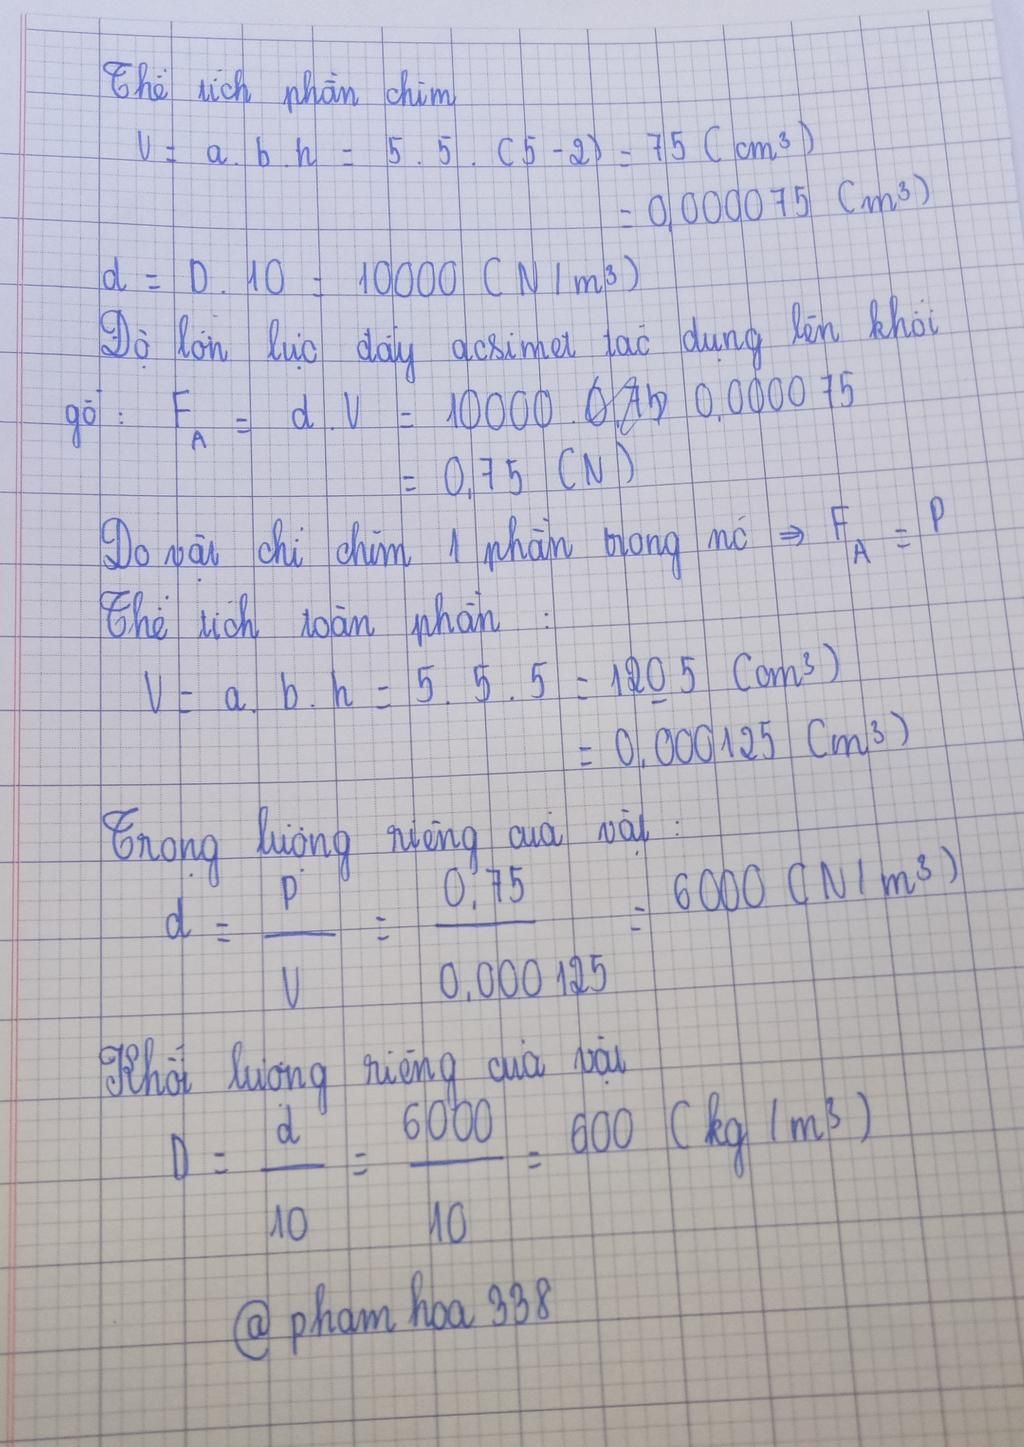 Thể tích phần chìm
V = a.b.h = 5.5.(5-2) = 75 (cm³)
= 0,000075 (m³)
d = D.10 = 10000 (N/m³)
Độ lớn lực đẩy acsimet tác dụng lên khối
gỗ: F_A = d.V = 10000. 0,000075
= 0,75 (N)
Do vật chỉ chìm 1 phần trong nó ⇒ F_A = P
Thể tích toàn phần:
V = a.b.h = 5.5.5 = 1205 (cm³)
= 0,000125 (m³)
Trọng lượng riêng của vật:
d = P/V = 0,75/0,000125 = 6000 (N/m³)
Khối lượng riêng của vật
D = d/10 = 6000/10 = 600 (kg/m³)
@phamhoa338